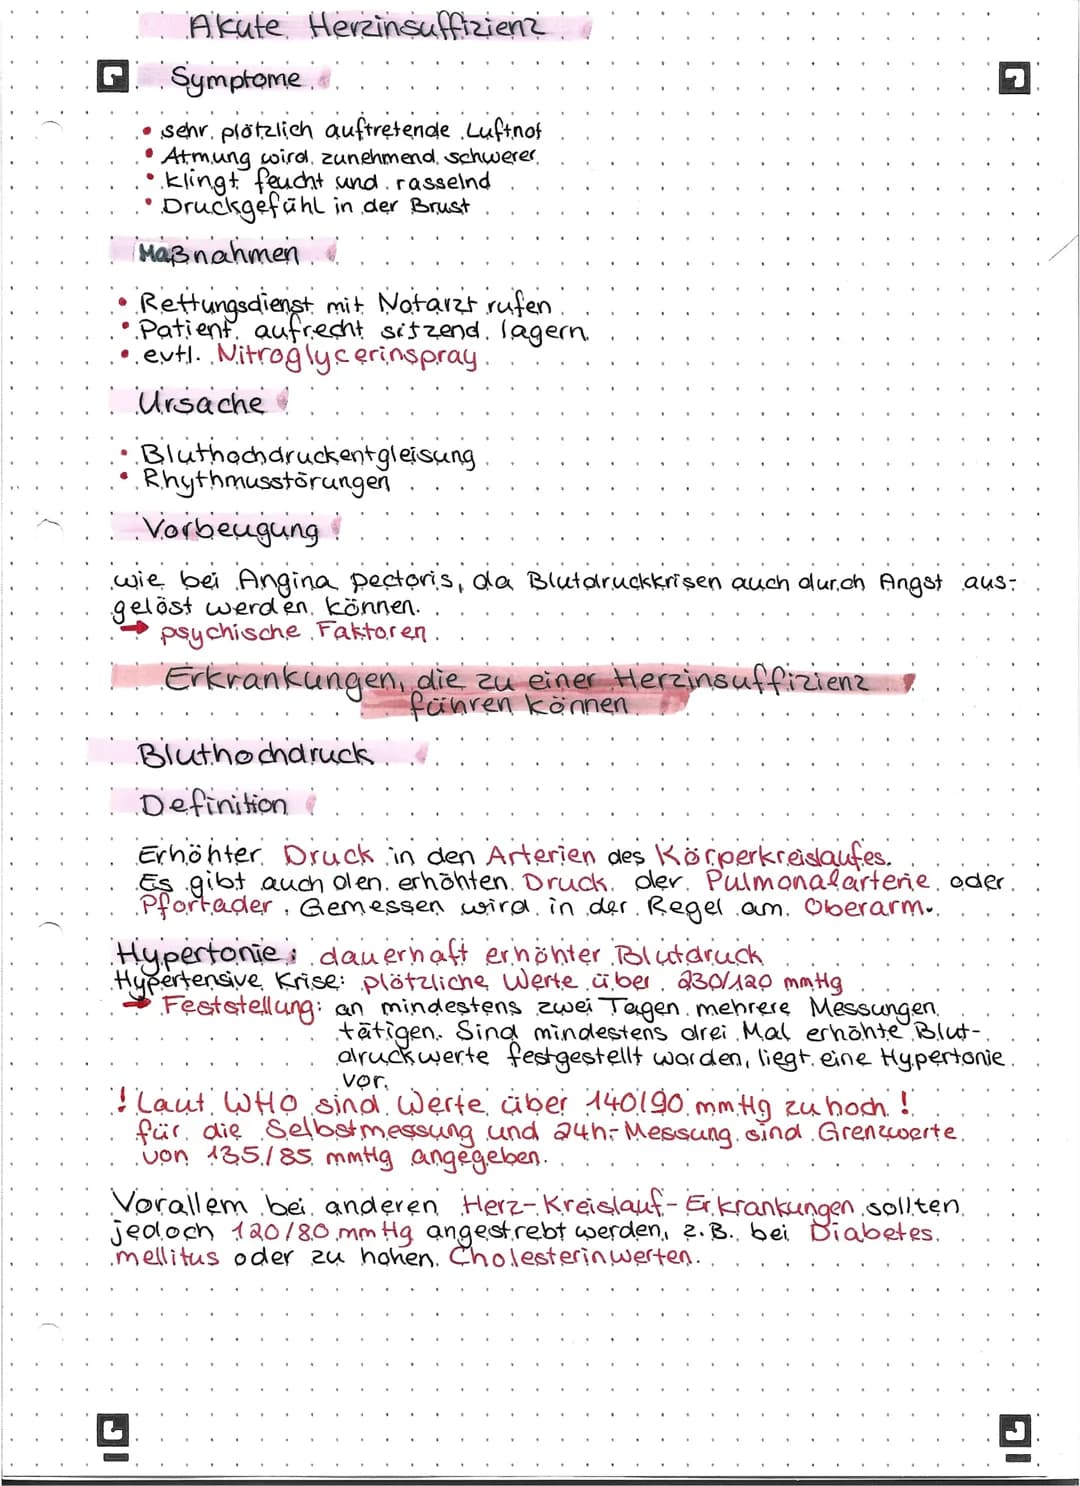 Akute Herzinsuffizienz
Symptome
• sehr plötzlich auftretende Luftnot
• Atmung wird zunehmend schwerer
• klingt feucht und rasselnd
• Druckgefühl in der Brust
Maßnahmen
• Rettungsdienst mit Notarzt rufen
• Patient aufrecht sitzend lagern
• evtl. Nitroglycerinspray
Ursache
• Bluthochdruckentgleisung
• Rhythmusstörungen
Vorbeugung
wie bei Angina pectoris, da Blutdruckkrisen auch durch Angst aus-
gelöst werden können.
→ psychische Faktoren
Erkrankungen, die zu einer Herzinsuffizienz
führen können
Bluthochdruck
Definition
Erhöhter Druck in den Arterien des Körperkreislaufes.
Es gibt auch den erhöhten Druck der Pulmonalarterie oder
Pfortader. Gemessen wird in der Regel am Oberarm.
Hypertonie: dauerhaft erhöhter Blutdruck
Hypertensive Krise: plötzliche Werte über 230/120 mmHg
→ Feststellung: an mindestens zwei Tagen mehrere Messungen
tätigen. Sind mindestens drei Mal erhöhte Blut-
druckwerte festgestellt worden, liegt eine Hypertonie
vor.
! Laut WHO sind Werte über 140/90 mmHg zu hoch !
für die Selbstmessung und 24h-Messung sind Grenzwerte
von 135/85 mmHg angegeben.
Vorallem bei anderen Herz-Kreislauf-Erkrankungen sollten
jedoch 120/80 mmHg angestrebt werden, z.B. bei Diabetes
mellitus oder zu hohen Cholesterinwerten.